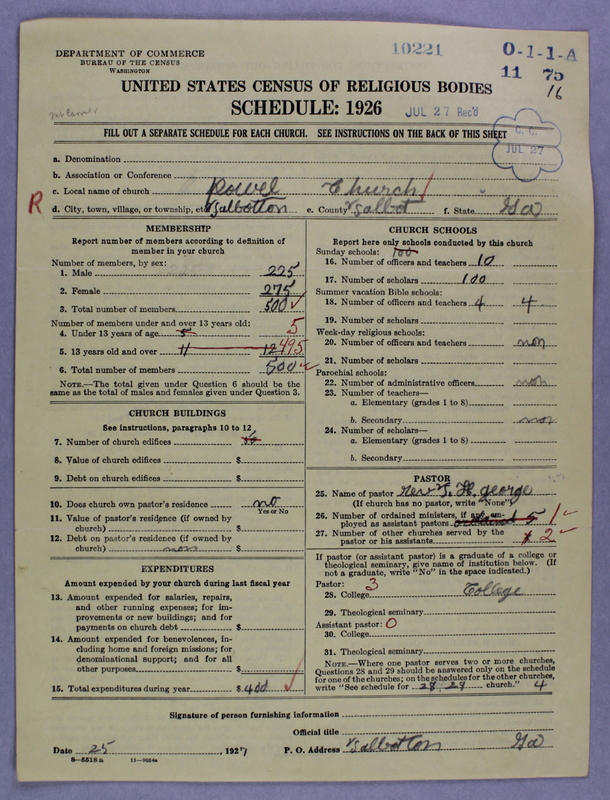 DEPARTMENT OF COMMERCE
BUREAU OF THE CENSUS
WASHINGTON
10221
O-1-1-A
11 75
16
UNITED STATES CENSUS OF RELIGIOUS BODIES
SCHEDULE: 1926
JUL 27 Rec'd
C. C.
JUL 27
FILL OUT A SEPARATE SCHEDULE FOR EACH CHURCH. SEE INSTRUCTIONS ON THE BACK OF THIS SHEET
a. Denomination
b. Association or Conference
c. Local name of church Powel Church
R d. City, town, village, or township, etc. Talbotton e. County Talbot f. State Ga
MEMBERSHIP
Report number of members according to definition of
member in your church
Number of members, by sex:
1. Male 225
2. Female 275
3. Total number of members 500
Number of members under and over 13 years old:
4. Under 13 years of age 5
5. 13 years old and over 11 12 495
6. Total number of members 500
NOTE.—The total given under Question 6 should be
same as the total of males and females given under Question 3.
CHURCH BUILDINGS
See instructions, paragraphs 10 to 12
7. Number of church edifices
8. Value of church edifices $
9. Debt on church edifices $
10. Does church own pastor's residence no
Yes or No
11. Value of pastor's residence (if owned by
church) $
12. Debt on pastor's residence (if owned by
church) non $
EXPENDITURES
Amount expended by your church during last fiscal year
13. Amount expended for salaries, repairs,
and other running expenses; for im-
provements or new buildings; and for
payments on church debt $
14. Amount expended for benevolences, in-
cluding home and foreign missions; for
denominational support; and for all
other purposes $
15. Total expenditures during year $ 400
CHURCH SCHOOLS
Report here only schools conducted by this church
Sunday schools: 100
16. Number of officers and teachers 10
17. Number of scholars 100
Summer vacation Bible schools:
18. Number of officers and teachers 4 4
19. Number of scholars
Week-day religious schools:
20. Number of officers and teachers non
21. Number of scholars
Parochial schools:
22. Number of administrative officers non
23. Number of teachers—
a. Elementary (grades 1 to 8)
b. Secondary non
24. Number of scholars—
a. Elementary (grades 1 to 8)
b. Secondary
PASTOR
25. Name of pastor Rev. T. H. george
(If church has no pastor, write "None")
26. Number of ordained ministers, if any, em-
ployed as assistant pastors 5 1
27. Number of other churches served by the
pastor or his assistants 2
If pastor (or assistant pastor) is a graduate of a college or
theological seminary, give name of institution below. (If
not a graduate, write "No" in the space indicated.)
Pastor: 3
28. College College
29. Theological seminary
Assistant pastor: 0
30. College
31. Theological seminary
NOTE.—Where one pastor serves two or more churches,
Questions 28 and 29 should be answered only on the schedule
for one of the churches; on the schedules for the other churches,
write "See schedule for 28, 29 church." 4
Signature of person furnishing information
Official title
Date 25, 1927 P. O. Address Talbotton Ga
8—5518 a 11—9054a